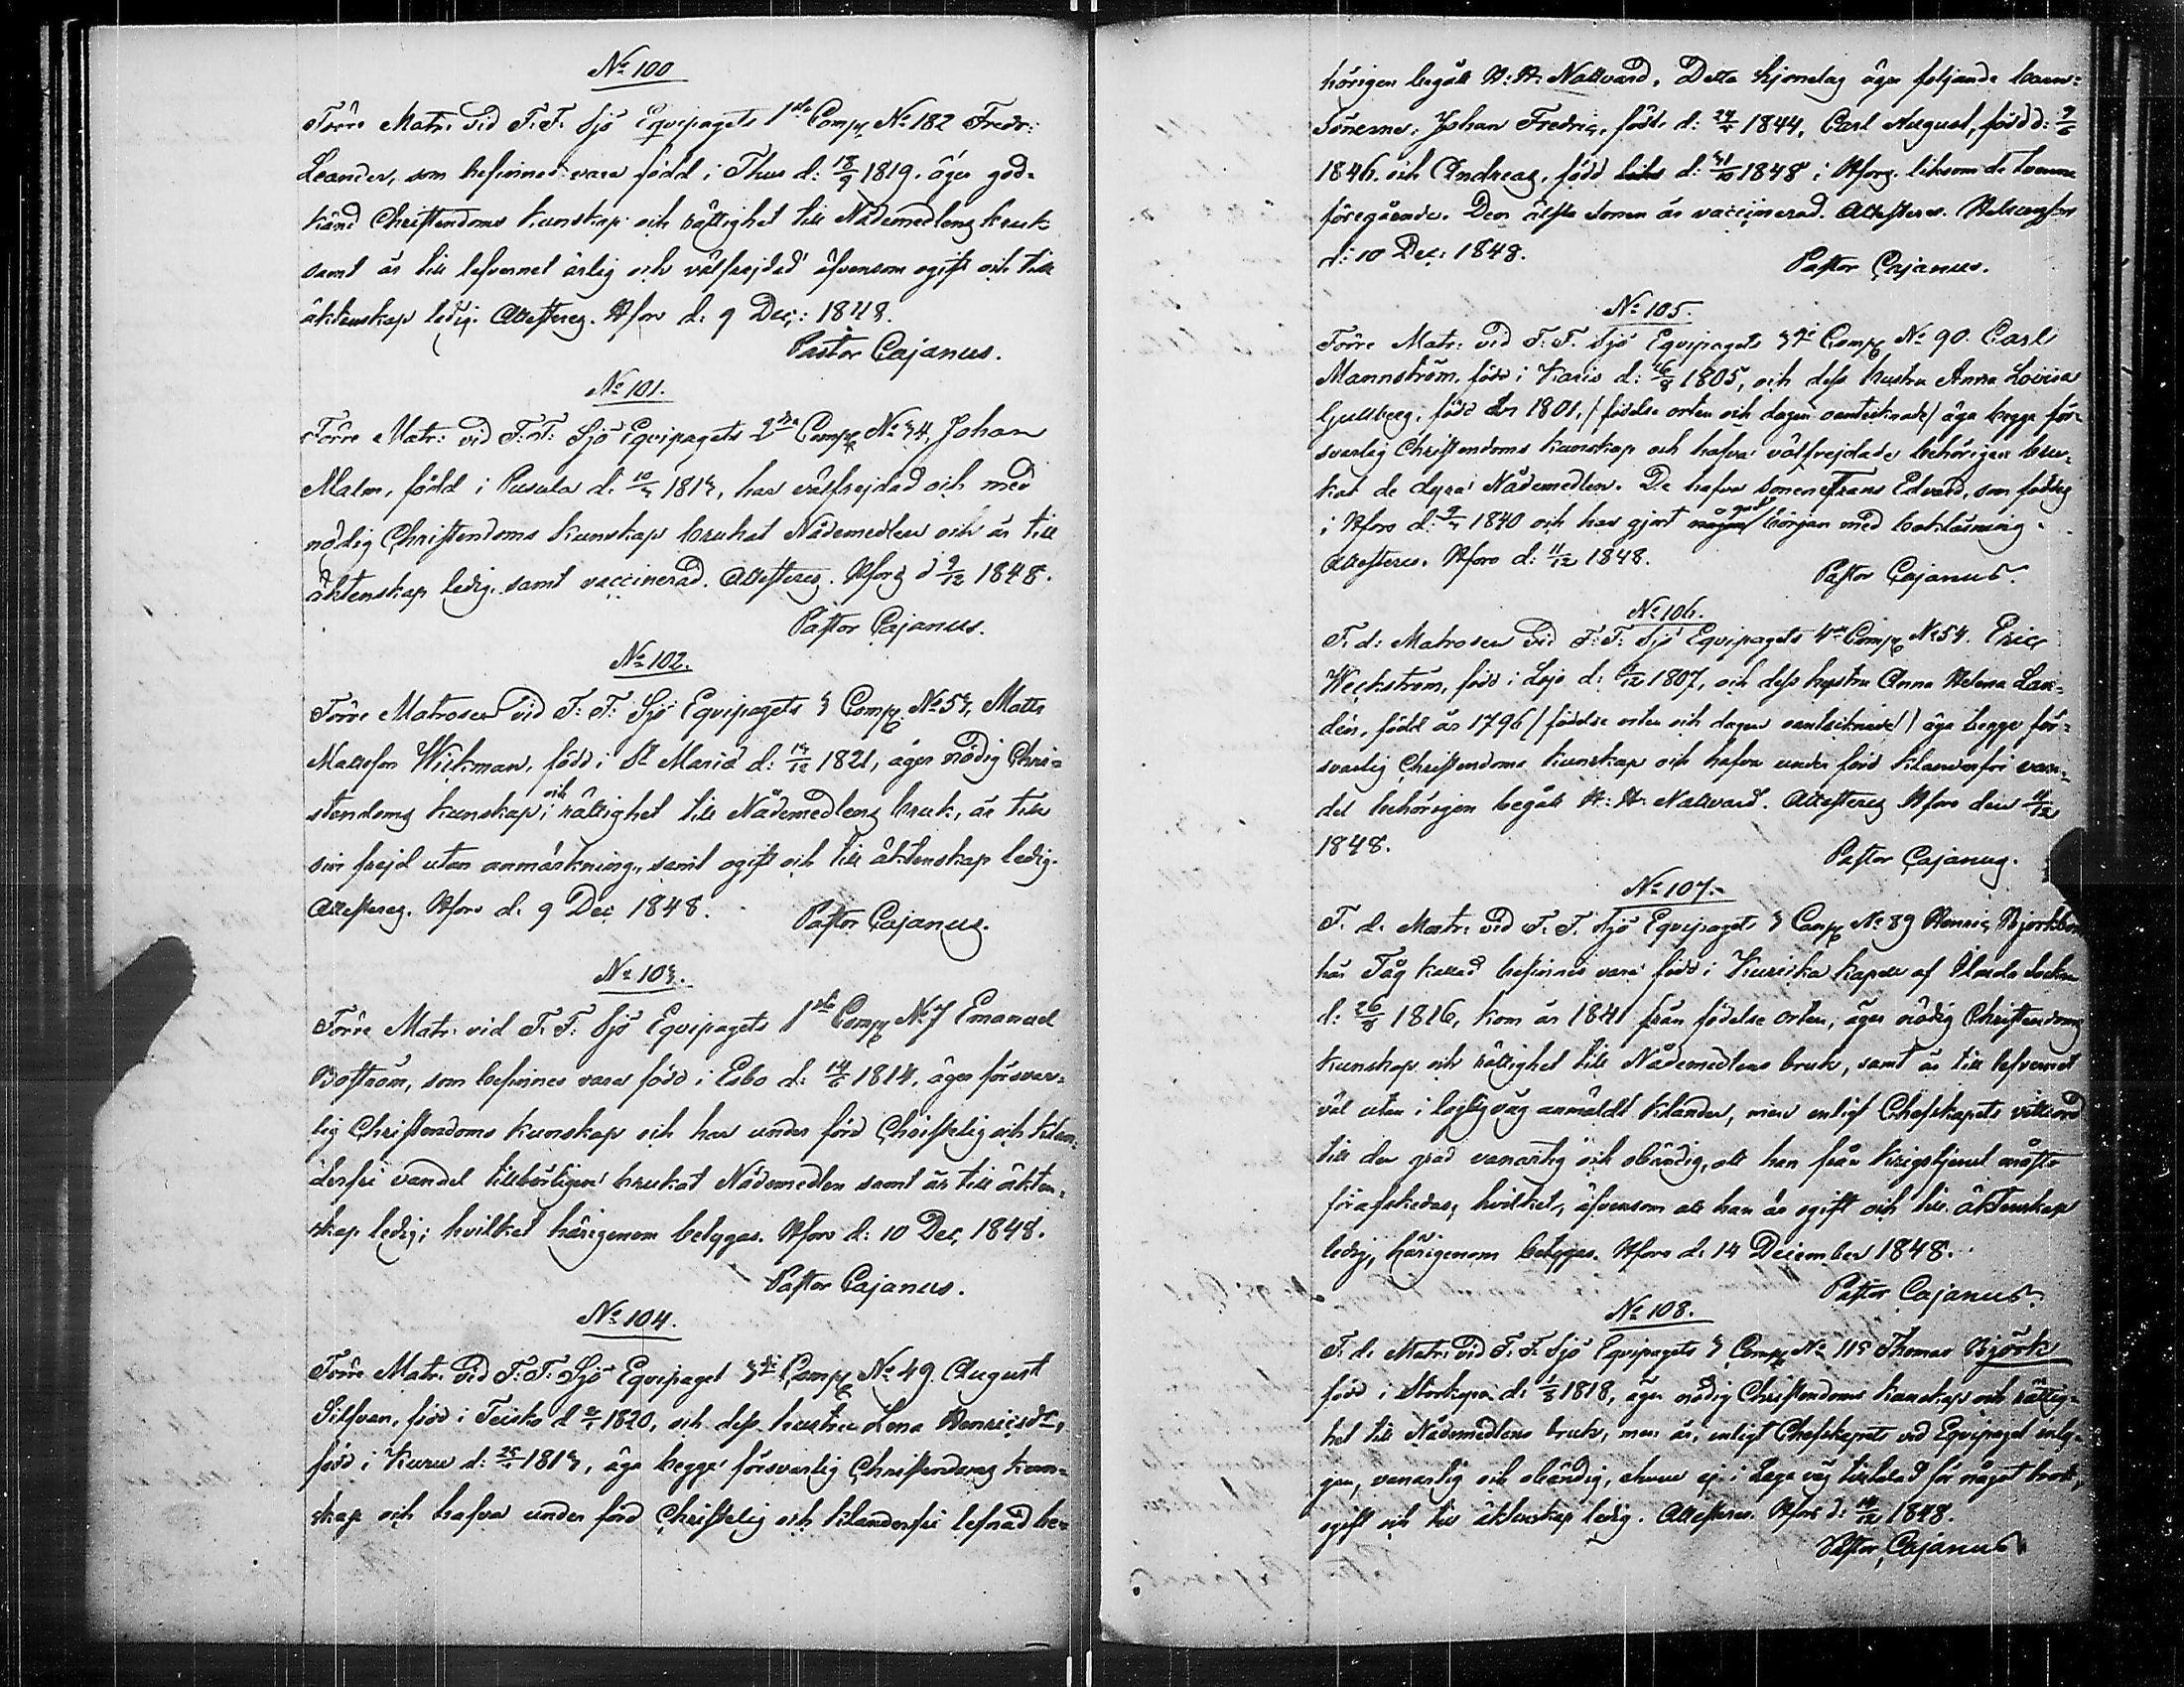 No 100
Förre Matr. vid F. F. Sjö Equipagets 1sta Comp. No 182 Fredr:
Leander, som befinnes vara född i Thus d: 18/9 1819. äger god-
känd Christendoms kunskap och rättighet till Nådemedlens bruk
samt är till lefvernet ärlig och välfrejdad äfvensom ogift och till
äktenskap ledig. Attesteras. Hfors d. 9 Dec: 1848.
Pastor Cajanus.
No 101.
Förre Matr: vid F: F: Sjö Equipagets 2dra Comp. No 34, Johan
Malm, född i Pusula d. 10/3 1813, har välfrejdad och med
nödig Christendoms kunskap brukat Nådemedlen och är till
äktenskap ledig, samt vaccinerad. Attesteras. Hfors d 9/12 1848.
Pastor Cajanus.
No 102.
Förre Matrosen vid F: F: Sjö Equipagets 3 Comp. No 53, Matts
Mattsson Wickman, född i St Mariæ d: 13/12 1821, äger nödig Chri-
stendoms kunskap och rättighet till Nådemedlens bruk, är till
sin frejd utan anmärkning, samt ogift och till äktenskap ledig.
Attesteras. Hfors d. 9 Dec 1848.
Pastor Cajanus.
No 103.
Förre Matr. vid F. F: Sjö Equipagets 1sta Comp. No 7 Emanuel
Boström, som befinnes vara född i Esbo d: 14/6 1814, äger försvar-
lig Christendoms kunskap och har under förd Christelig och klan-
derfri vandel tillbörligen brukat Nådemedlen samt är till äkten-
skap ledig; hvilket härigenom betygas. Hfors d: 10 Dec, 1848.
Pastor Cajanus.
No 104.
Förre Matr. vid F: F: Sjö Equipaget 3die Comp. No 49. August
Silfvan, född i Teisko d 1820, och dess hustru Lena Henricsdr,
född i Kuru d: 1813, äga begge försvarlig Christendoms kun-
skap och hafva under förd Christelig och klanderfri lefnad be-
hörigen begått H: H: Nattvard. Detta Hjonelag äger följande barn:
Sönerne, Johan Fredric, född d: 1844, Carl August, född d: 9/6
1846. och Andreas, född d: 31/10 1848 i Hfors. liksom de tvenne
föregående. Den äldsta sonen är vaccinerad. Attesteras. Helsingfors
d: 10 Dec: 1848.
Pastor Cajanus.
No 105.
Förre Matr: vid F: F. Sjö Equipagets 3die Comp. No 90. Carl
Mannström, född i Karis d: 16/8 1805, och dess hustru Anna Lovisa
Gullberg, född år 1801, / födelse orten och dagen oantecknade / äga begge för-
svarlig Christendoms kunskap och hafva välfrejdade behörigen bru-
kat de dyra Nådemedlen. De hafva sonen Frans Edvard, som föddes
i Hfors d: 1840 och har gjort god början med bokläsning.
Attesteras. Hfors d: 11/12 1848.
Pastor Cajanus.
No 106.
F. d: Matrosen vid F: F: Sjö Equipagets 4de Comp. No 54. Eric
Weckström, född i Lojo d: 1807, och dess hustru Anna Helena Lan-
dén, född år 1796 / födelse orten och dagen oantecknade / äga begge för-
svarlig Christendoms kunskap och hafva under förd klanderfri van-
del behörigen begått H: H: Nattvard. Attesteras Hfors den 11/12
1848.
Pastor Cajanus.
No 107.
F. d. Matr. vid F. F. Sjö Equipagets 3 Comp. No 89 Henric Björkbom
här Tåg kallad befinnes vara född i Kuriska kapell af Ilmola Sockn
d: 26/8 1816, kom år 1841 från födelse orten, äger nödig Christendoms
kunskap och rättighet till Nådemedlens bruk, samt är till lefvernet
väl utan i laglig väg anmäldt klander, men enligt Chefskapets vittsord
till den grad vanartig och obändig, att han från krigstjenst måste
förafskedas, hvilket, äfvensom att han är ogift och till äktenskap
ledig, härigenom betygas. Hfors d. 14 December 1848.
Pastor Cajanus.
No 108.
F. d. Matr. vid F. F. Sjö Equipagets 3 Comp. No 115 Thomas Björk
född i Storkyro d. 1/8 1818, äger nödig Christendoms kunskap och rättig-
het till Nådemedlens bruk, men är, enligt Chefskapets vid Equipaget
vanartig och obändig, ehuru ej i Laga väg tilltalad för något brott,
ogift och till äktenskap ledig. Attesteras. Hfors d: 14/12 1848.
Pastor Cajanus